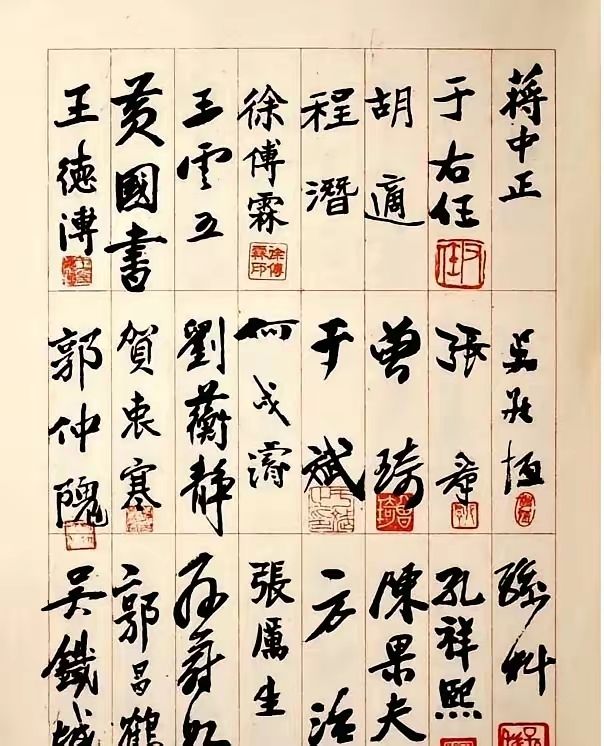 蔣中正
于右任
胡適
程潛
徐傅霖
徐傅霖印
王雲五
黃國書
王德溥
吳敬恆
張羣
曾琦
于斌
何成濬
劉蘅靜
賀衷寒
郭仲隗
孫科
孔祥熙
陳果夫
方治
張厲生
孫蔚如
郭昌鶴
吳鐵城